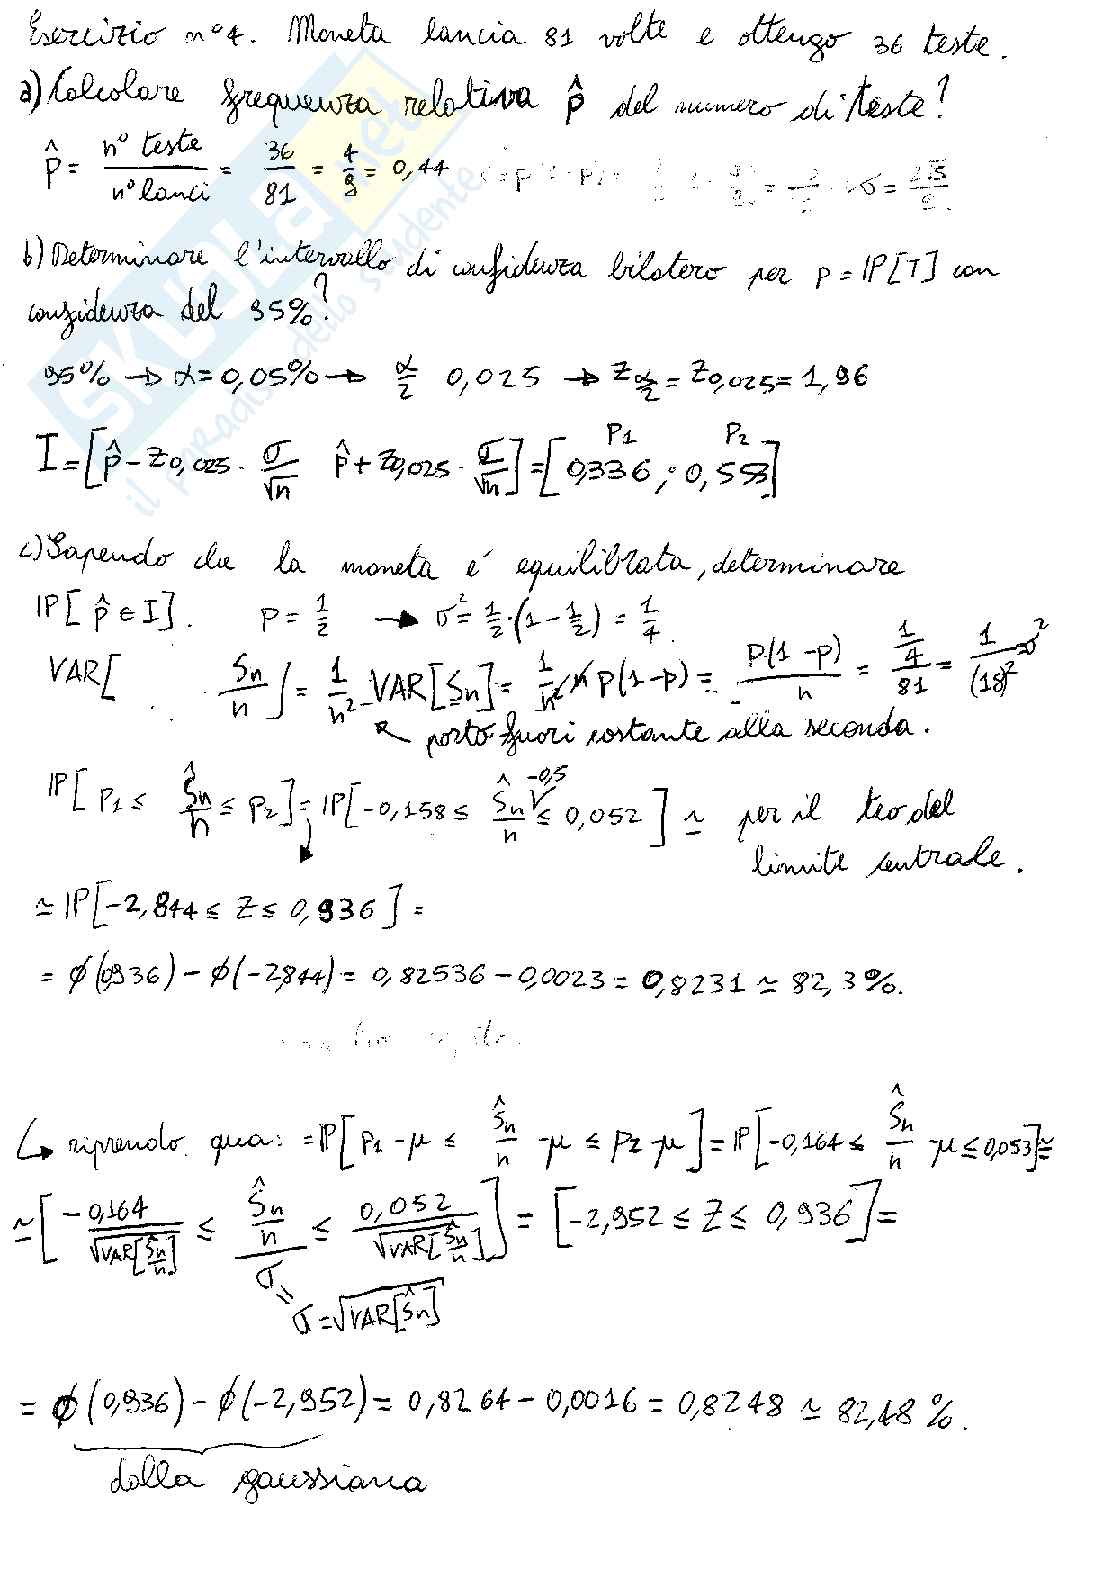 Esercizio n°4. Moneta lancia 81 volte e ottengo 36 teste.
a) Calcolare frequenza relativa p̂ del numero di teste?
p̂ = n° teste / n° lanci = 36/81 = 4/9 = 0,44
b) Determinare l'intervallo di confidenza bilatero per p = IP[T] con
confidenza del 95%?
95% → α = 0,05% → α/2 0,025 → Z α/2 = Z0,025 = 1,96
I = [p̂ - Z0,025 · σ/√n p̂ + Z0,025 · σ/√n] = [0,336 ; 0,553]
P1 P2
c) Sapendo che la moneta é equilibrata, determinare
IP[p̂ ∈ I]. p = 1/2 → σ² = 1/2 · (1 - 1/2) = 1/4
VAR[ Sn/n ] = 1/n² VAR[Sn] = 1/n² n p(1-p) = p(1-p)/n = 1/4 / 81 = 1/(18)² = σ²
porto fuori costante alla seconda.
IP[p1 ≤ Ŝn/n ≤ p2] = IP[-0,158 ≤ Ŝn/n -0,5 ≤ 0,052] ≃ per il teo del
limite centrale.
≃ IP[-2,844 ≤ Z ≤ 0,936] =
= ϕ(0,936) - ϕ(-2,844) = 0,82536 - 0,0023 = 0,8231 ≃ 82,3%.
↳ riprendo qua: = IP[p1 - μ ≤ Ŝn/n - μ ≤ p2 - μ] = IP[-0,164 ≤ Ŝn/n - μ ≤ 0,053] ≃
≃ [-0,164 / √VAR[Ŝn/n] ≤ Ŝn/n / σ ≤ 0,052 / √VAR[Ŝn/n]] = [-2,952 ≤ Z ≤ 0,936] =
σ = √VAR[Ŝn]
= ϕ(0,936) - ϕ(-2,952) = 0,8264 - 0,0016 = 0,8248 ≃ 82,48%.
dalla gaussiana
SKUOLA.net
il paradiso dello studente